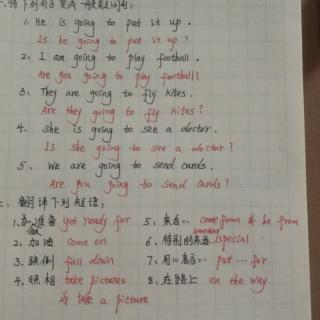 一、将下列句子变成一般疑问句:
1. He is going to put it up.
Is he going to put it up?
2. I am going to play football.
Are you going to play football?
3. They are going to fly kites.
Are they going to fly kites?
4. She is going to see a doctor.
Is she going to see a doctor?
5. We are going to send cards.
Are you going to send cards?
二、翻译下列短语:
1. 为准备 get ready for 5. 来自… come from 或 be from
2. 加油 come on 6. 特别的东西 something special
3. 跌倒 fall down 7. put … for
4. 照相 take pictures 8. 在路上 on the way
或 take a picture